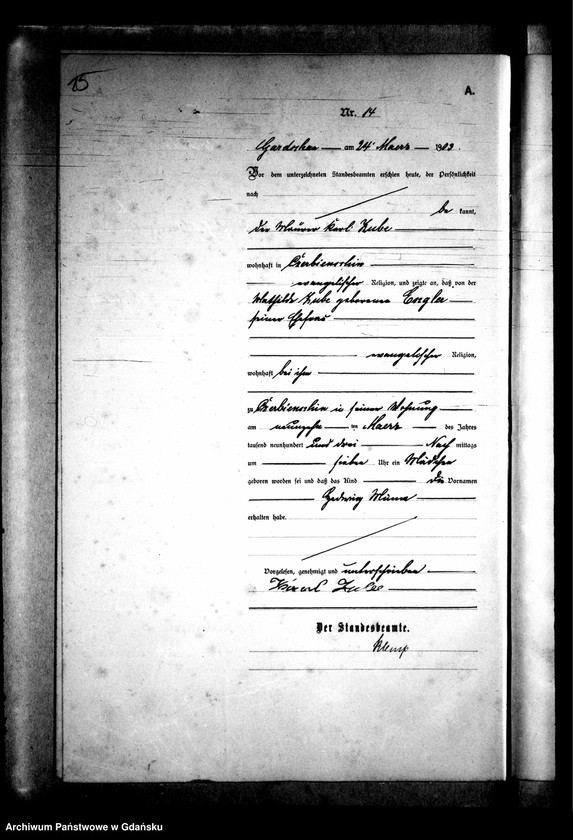 15
A.
Nr. 14
am 24 Maerz 1903.
Vor dem unterzeichneten Standesbeamten erschien heute, der Persönlichkeit
nach
be kannt,
der Maurer Karl Zube
wohnhaft in Czerbienschin
evangelischer Religion, und zeigte an, daß von der
Mathilde Zube geborenen Engler
seiner Ehefrau
evangelischer Religion,
wohnhaft bei ihm
zu Czerbienschin in seiner Wohnung
am neunzehn ten Maerz des Jahres
tausend neunhundert und drei Nach mittags
um sieben Uhr ein Mädchen
geboren worden sei und daß das Kind die Vornamen
Hedwig Minna
erhalten habe.
Vorgelesen, genehmigt und unterschrieben
Karl Zube
Der Standesbeamte.
Archiwum Państwowe w Gdańsku